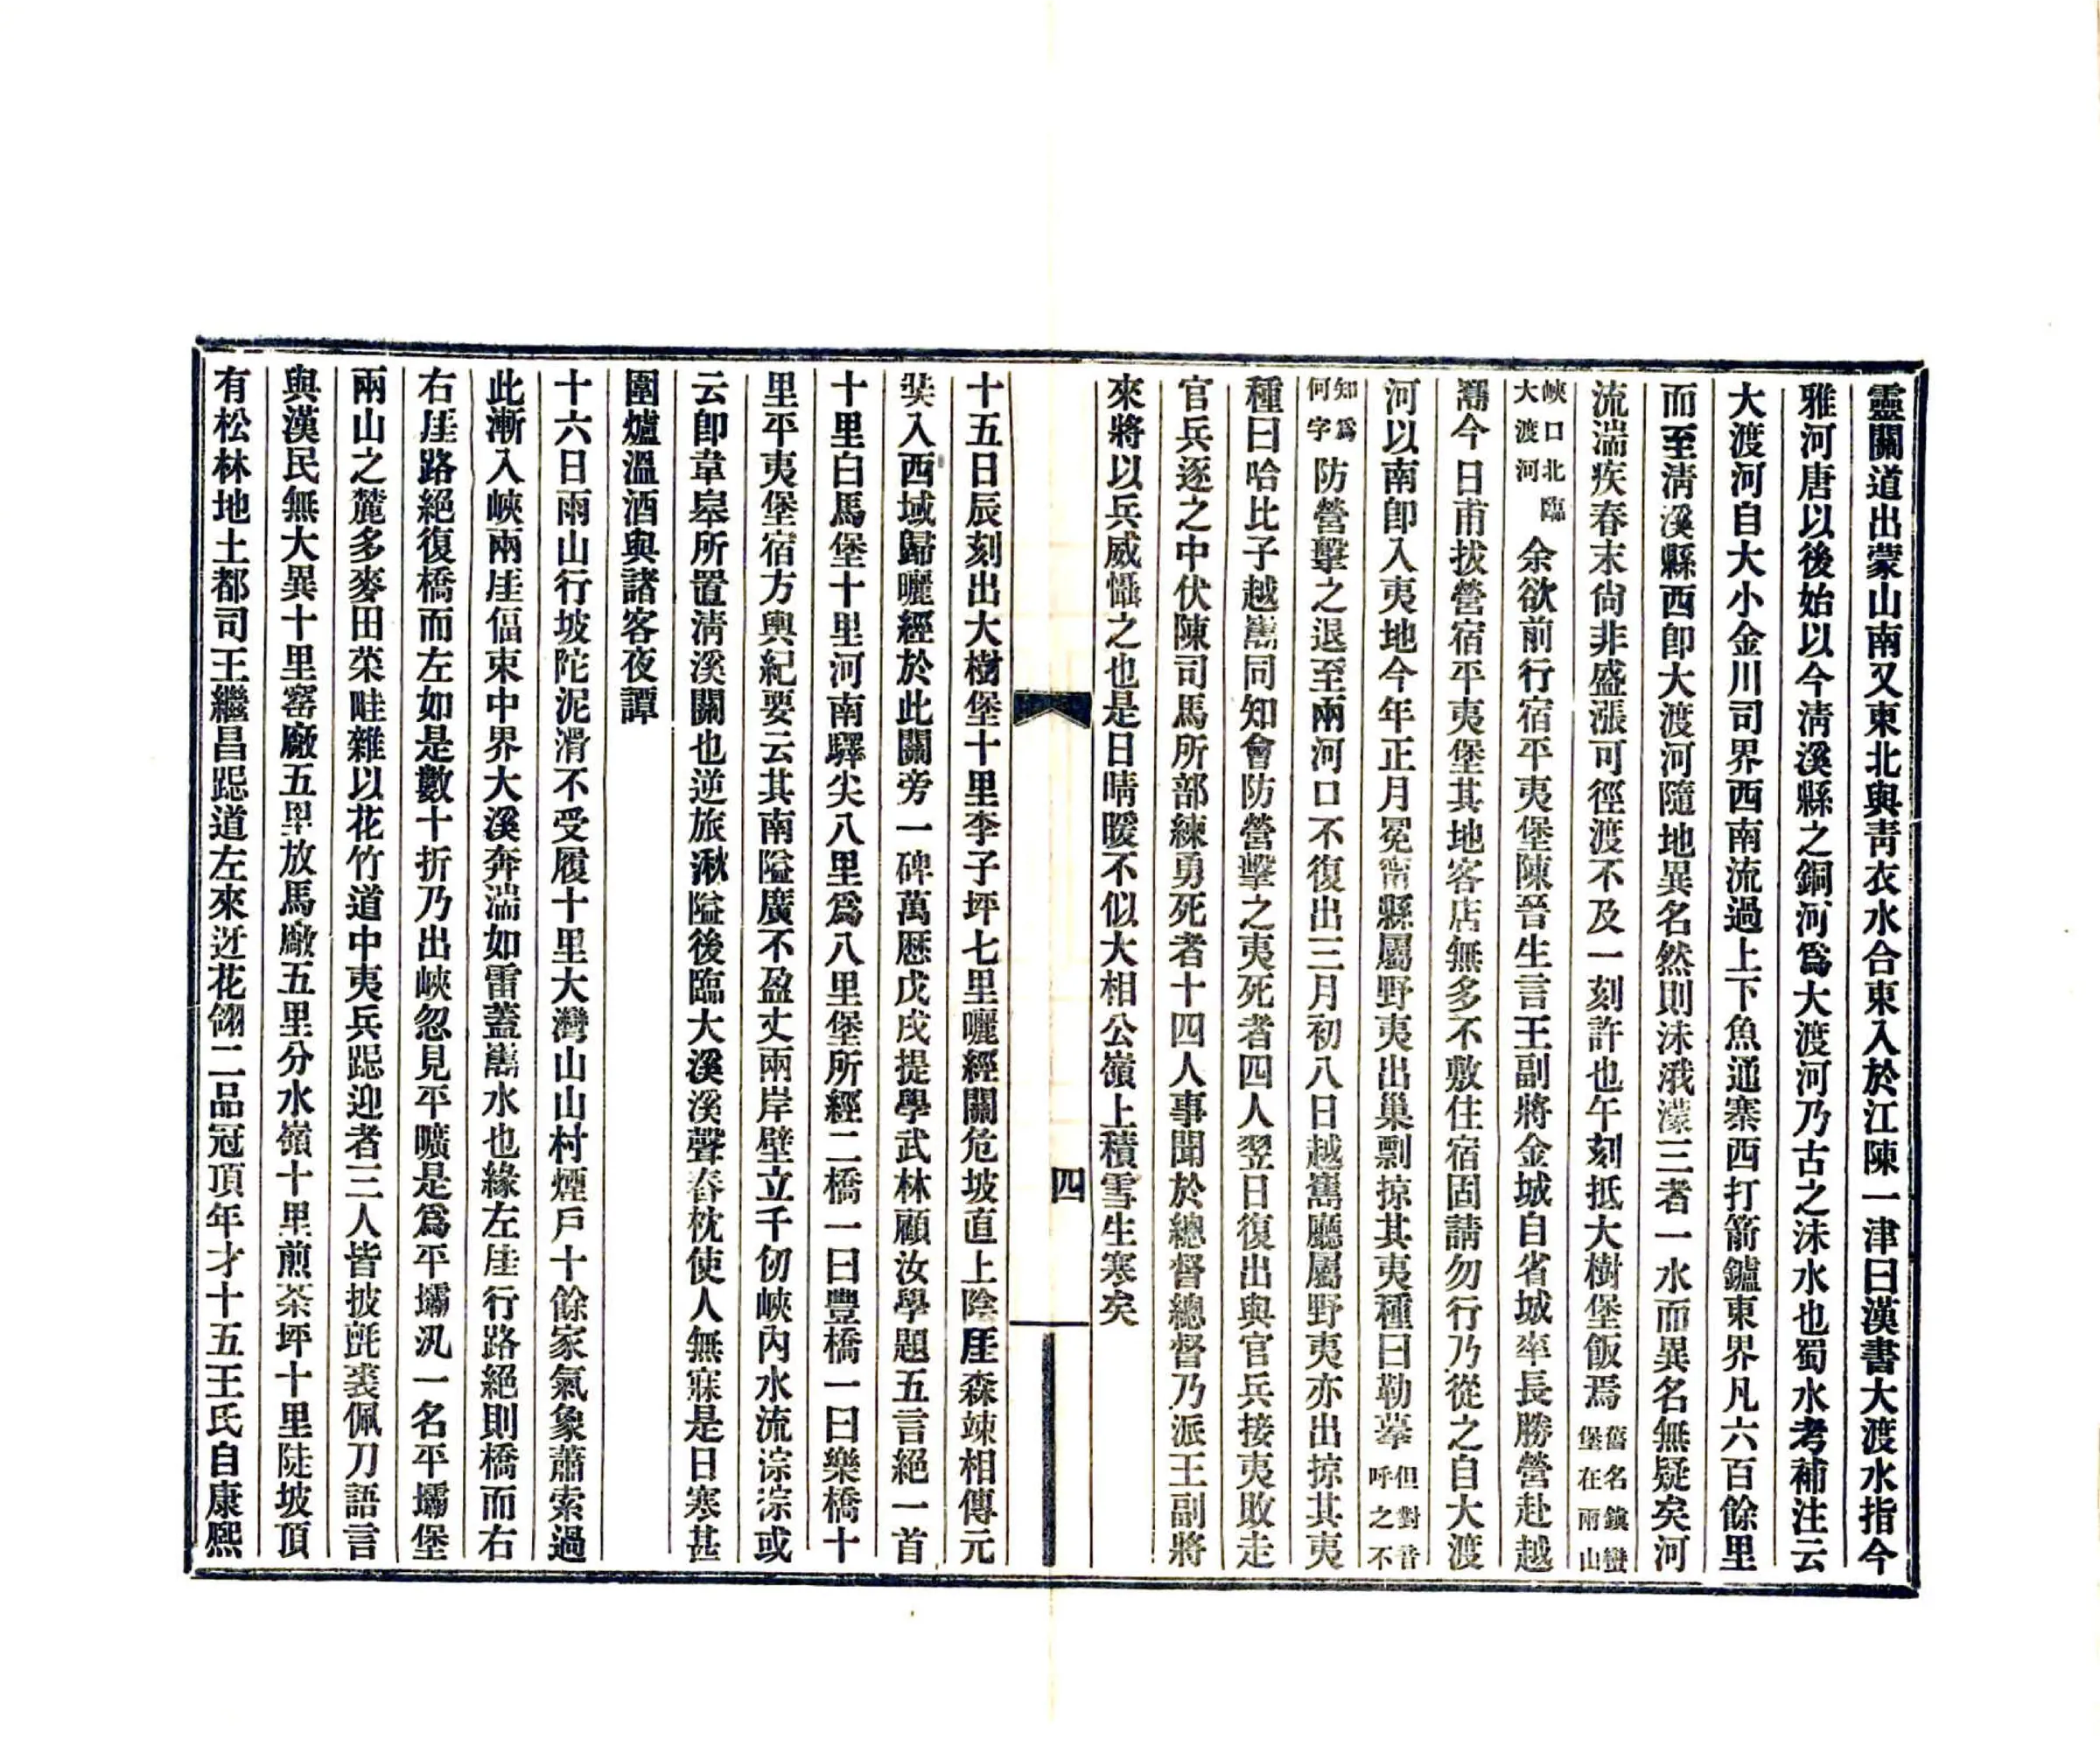 靈關道出蒙山南又東北與靑衣水合東入於江陳一津曰漢書大渡水指今
雅河唐以後始以今淸溪縣之銅河爲大渡河乃古之沬水也蜀水考補注云
大渡河自大小金川司界西南流過上下魚通寨西打箭鑪東界凡六百餘里
而至淸溪縣西卽大渡河隨地異名然則沬涐濛三者一水而異名無疑矣河
流湍疾春末尙非盛漲可徑渡不及一刻許也午刻抵大樹堡飯焉舊名鎭蠻堡在兩山
峽口北臨大渡河余欲前行宿平夷堡陳晉生言王副將金城自省城率長勝營赴越
巂今日甫拔營宿平夷堡其地客店無多不敷住宿固請勿行乃從之自大渡
河以南卽入夷地今年正月冕甯縣屬野夷出巢剽掠其夷種曰勒摹但對音呼之不
知爲何字防營擊之退至兩河口不復出三月初八日越巂廳屬野夷亦出掠其夷
種曰哈比子越巂同知會防營擊之夷死者四人翌日復出與官兵接夷敗走
官兵逐之中伏陳司馬所部練勇死者十四人事聞於總督總督乃派王副將
來將以兵威懾之也是日晴暖不似大相公嶺上積雪生寒矣
四
十五日辰刻出大樹堡十里李子坪七里曬經關危坡直上陰厓森竦相傳元
奘入西域歸曬經於此關旁一碑萬厯戊戌提學武林顧汝學題五言絕一首
十里白馬堡十里河南驛尖八里爲八里堡所經二橋一曰豐橋一曰樂橋十
里平夷堡宿方輿紀要云其南隘廣不盈丈兩岸壁立千仞峽內水流淙淙或
云卽韋皋所置淸溪關也逆旅湫隘後臨大溪溪聲舂枕使人無寐是日寒甚
圍爐溫酒與諸客夜譚
十六日雨山行坡陀泥滑不受履十里大灣山山村煙戶十餘家氣象蕭索過
此漸入峽兩厓偪束中界大溪奔湍如雷蓋巂水也緣左厓行路絕則橋而右
右厓路絕復橋而左如是數十折乃出峽忽見平曠是爲平壩汛一名平壩堡
兩山之麓多麥田菜畦雜以花竹道中夷兵跽迎者三人皆披氈裘佩刀語言
與漢民無大異十里窰廠五里放馬廠五里分水嶺十里煎茶坪十里陡坡頂
有松林地土都司王繼昌跽道左來迓花翎二品冠頂年才十五王氏自康熙